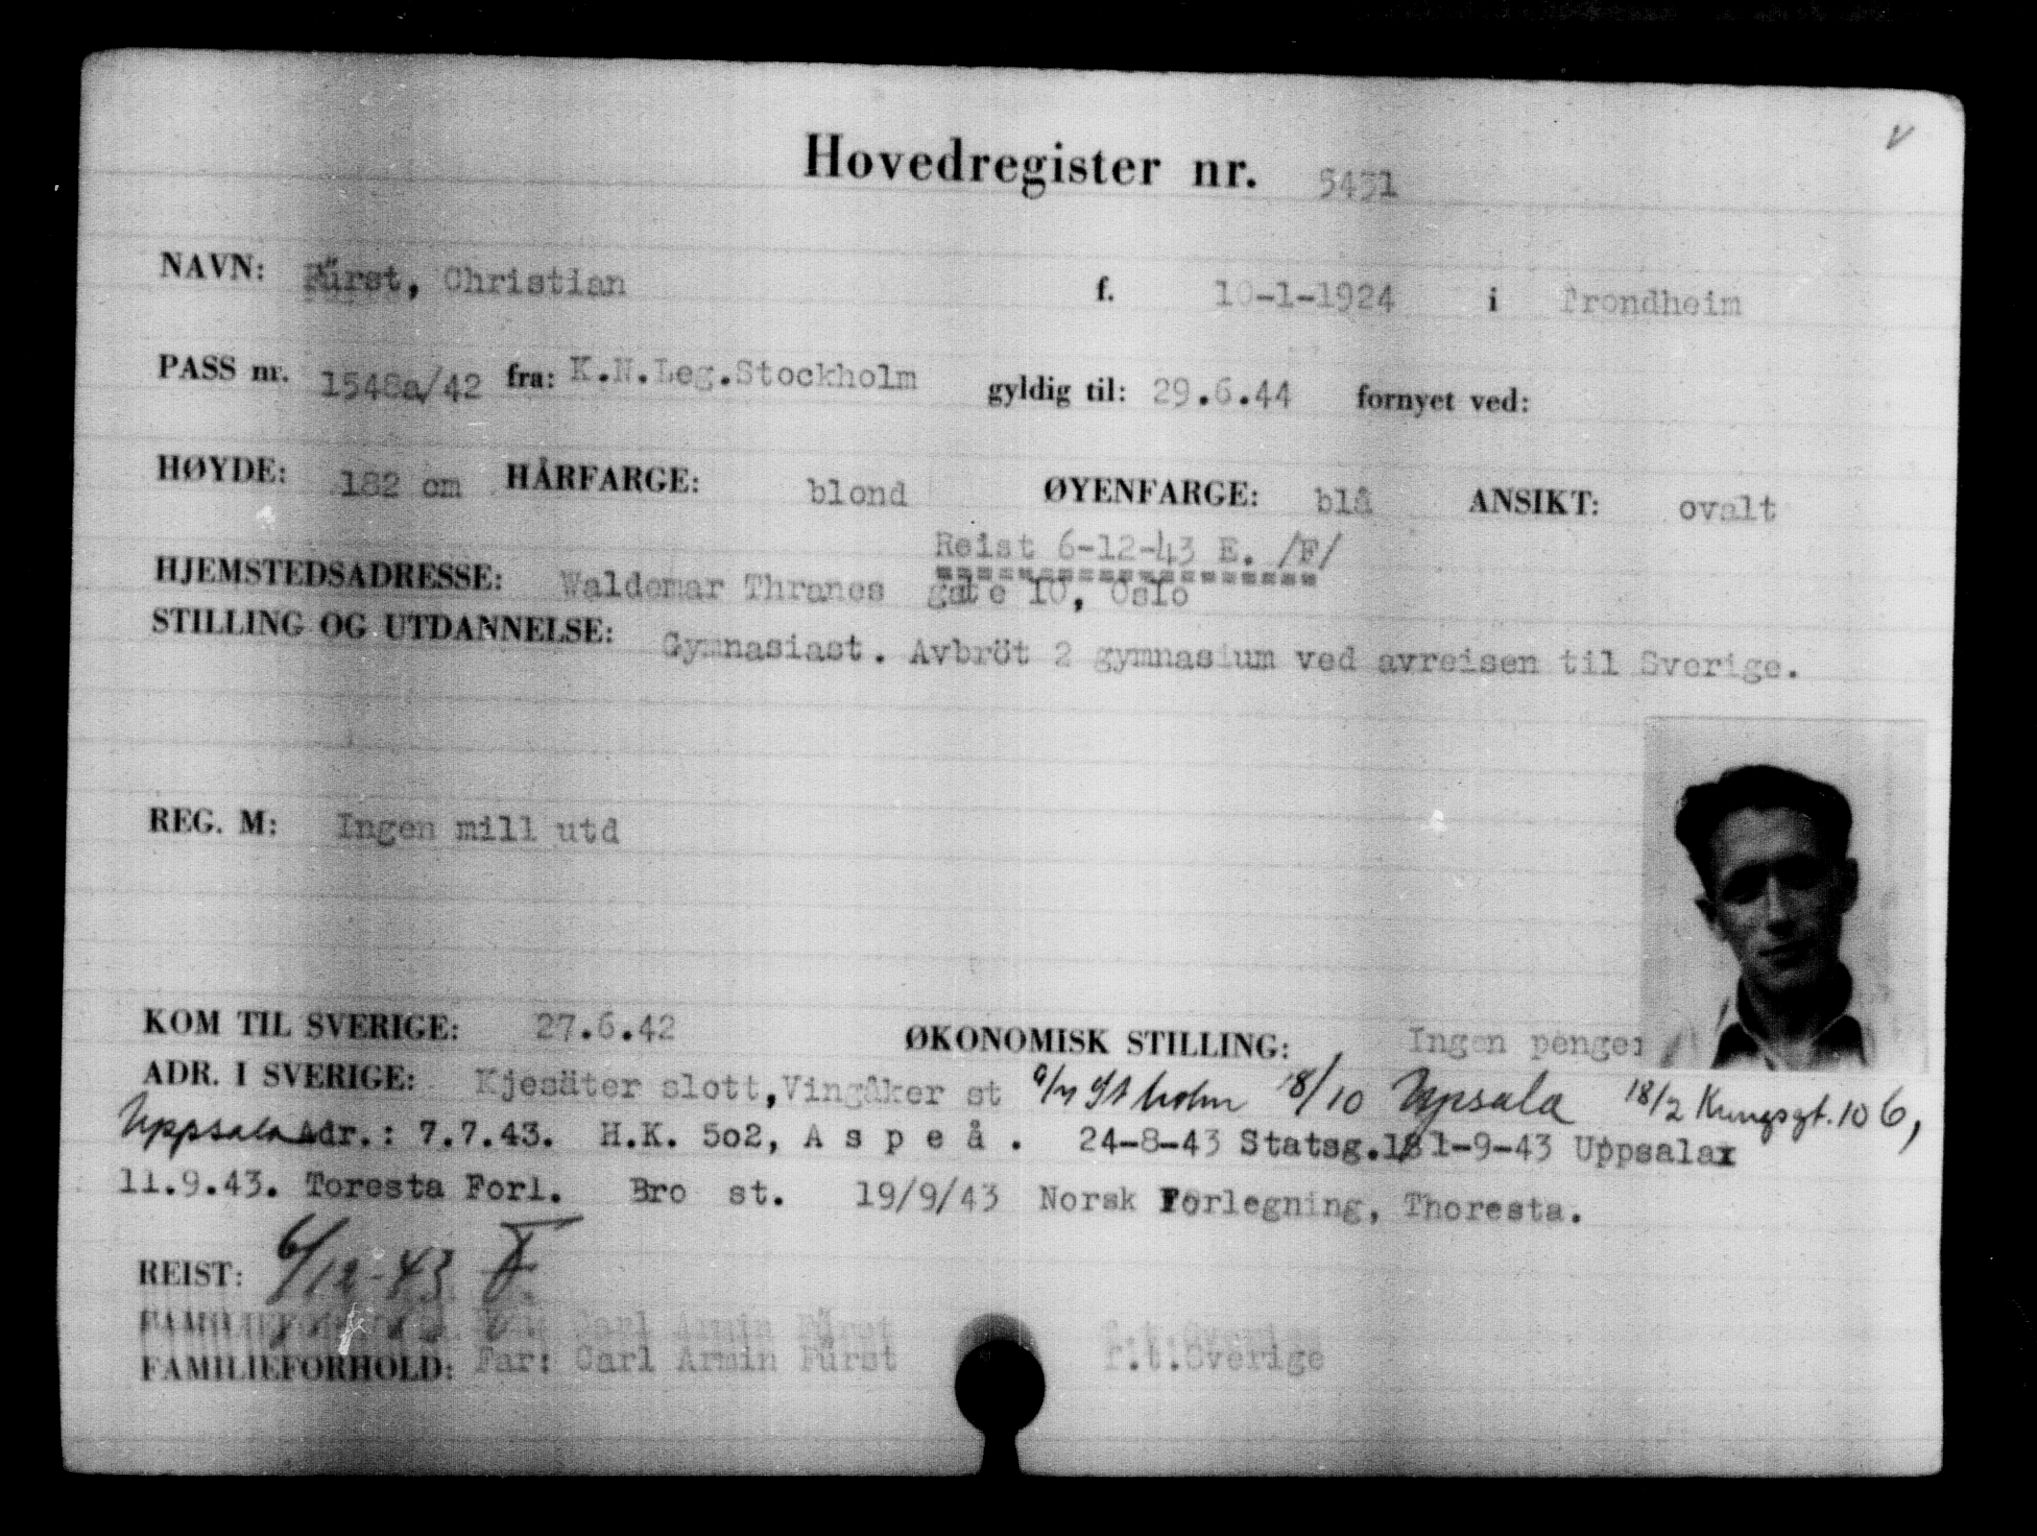 Hovedregister nr. 5431
NAVN: Fürst, Christian f. 10-1-1924 i Trondheim
PASS nr. 1548a/42 fra: K.N.Leg.Stockholm gyldig til: 29.6.44 fornyet ved:
HØYDE: 182 cm HÅRFARGE: blond ØYENFARGE: blå ANSIKT: ovalt
Reist 6-12-43 E. /F/
HJEMSTEDSADRESSE: Waldemar Thranes gate 10, Oslo
STILLING OG UTDANNELSE: Gymnasiast. Avbröt 2 gymnasium ved avreisen til Sverige.
REG. M: Ingen mill utd
KOM TIL SVERIGE: 27.6.42 ØKONOMISK STILLING: Ingen penger
ADR. I SVERIGE: Kjesäter slott, Vingåker st St holm 18/10 Uppsala 18/2 Kungsgt. 106,
Uppsala Adr.: 7.7.43. H.K. 502, A s p e å . 24-8-43 Statsg.18 1-9-43 Uppsala
11.9.43. Toresta Forl. Bro st. 19/9/43 Norsk Förlegning, Thoresta.
REIST: 6/12-43 F
FAMILIEFORHOLD: Far: Carl Armin Fürst f.t.Sverige